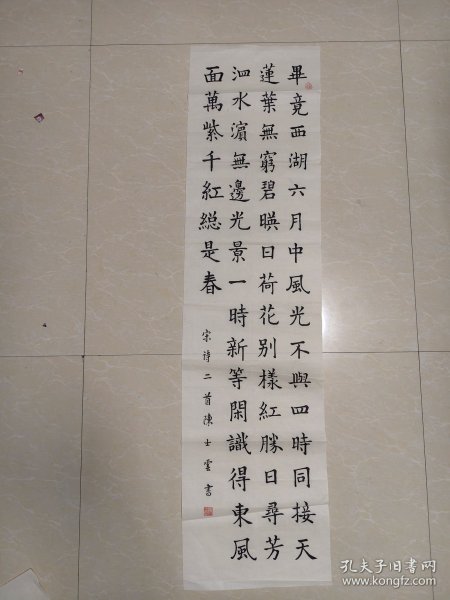 畢竟西湖六月中風光不與四時同接天
蓮葉無窮碧暎日荷花别樣紅勝日尋芳
泗水濵無邊光景一時新等閑識得東風
面萬紫千紅総是春
宋詩二首陳士雲書
孔夫子旧书网
www.kongfz.com